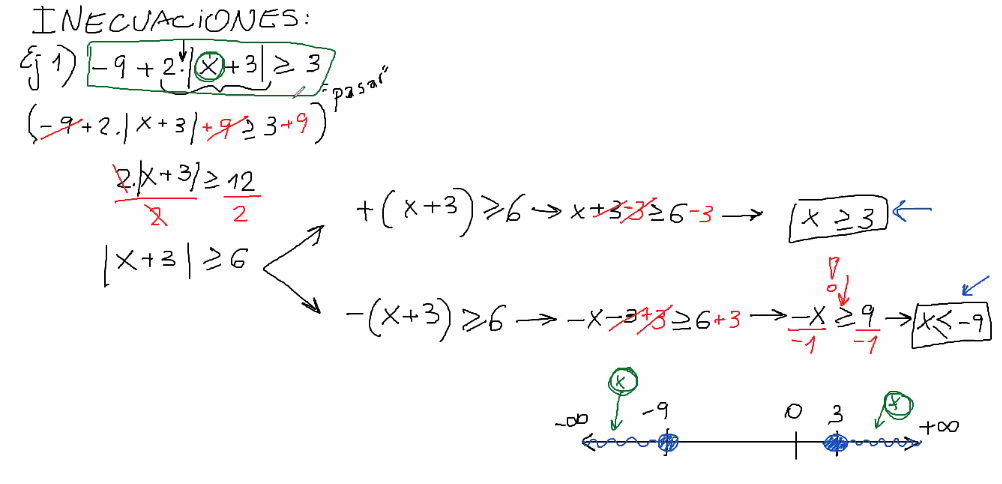 INECUACIONES:
Ej 1) -9 + 2·|x+3| ≥ 3
"pasar"
(-9+2.|x+3|+9≥3+9)
2.|x+3| ≥ 12
2 2
|x+3| ≥ 6
+(x+3) ≥ 6 → x+3-3 ≥ 6-3 → x ≥ 3
!
-(x+3) ≥ 6 → -x-3+3 ≥ 6+3 → -x ≥ 9 → x ≤ -9
-1 -1
x x
-∞ -9 0 3 +∞